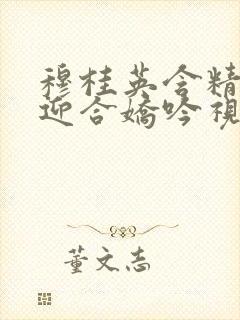 穆桂英含精
迎合嬌吟視
董文志